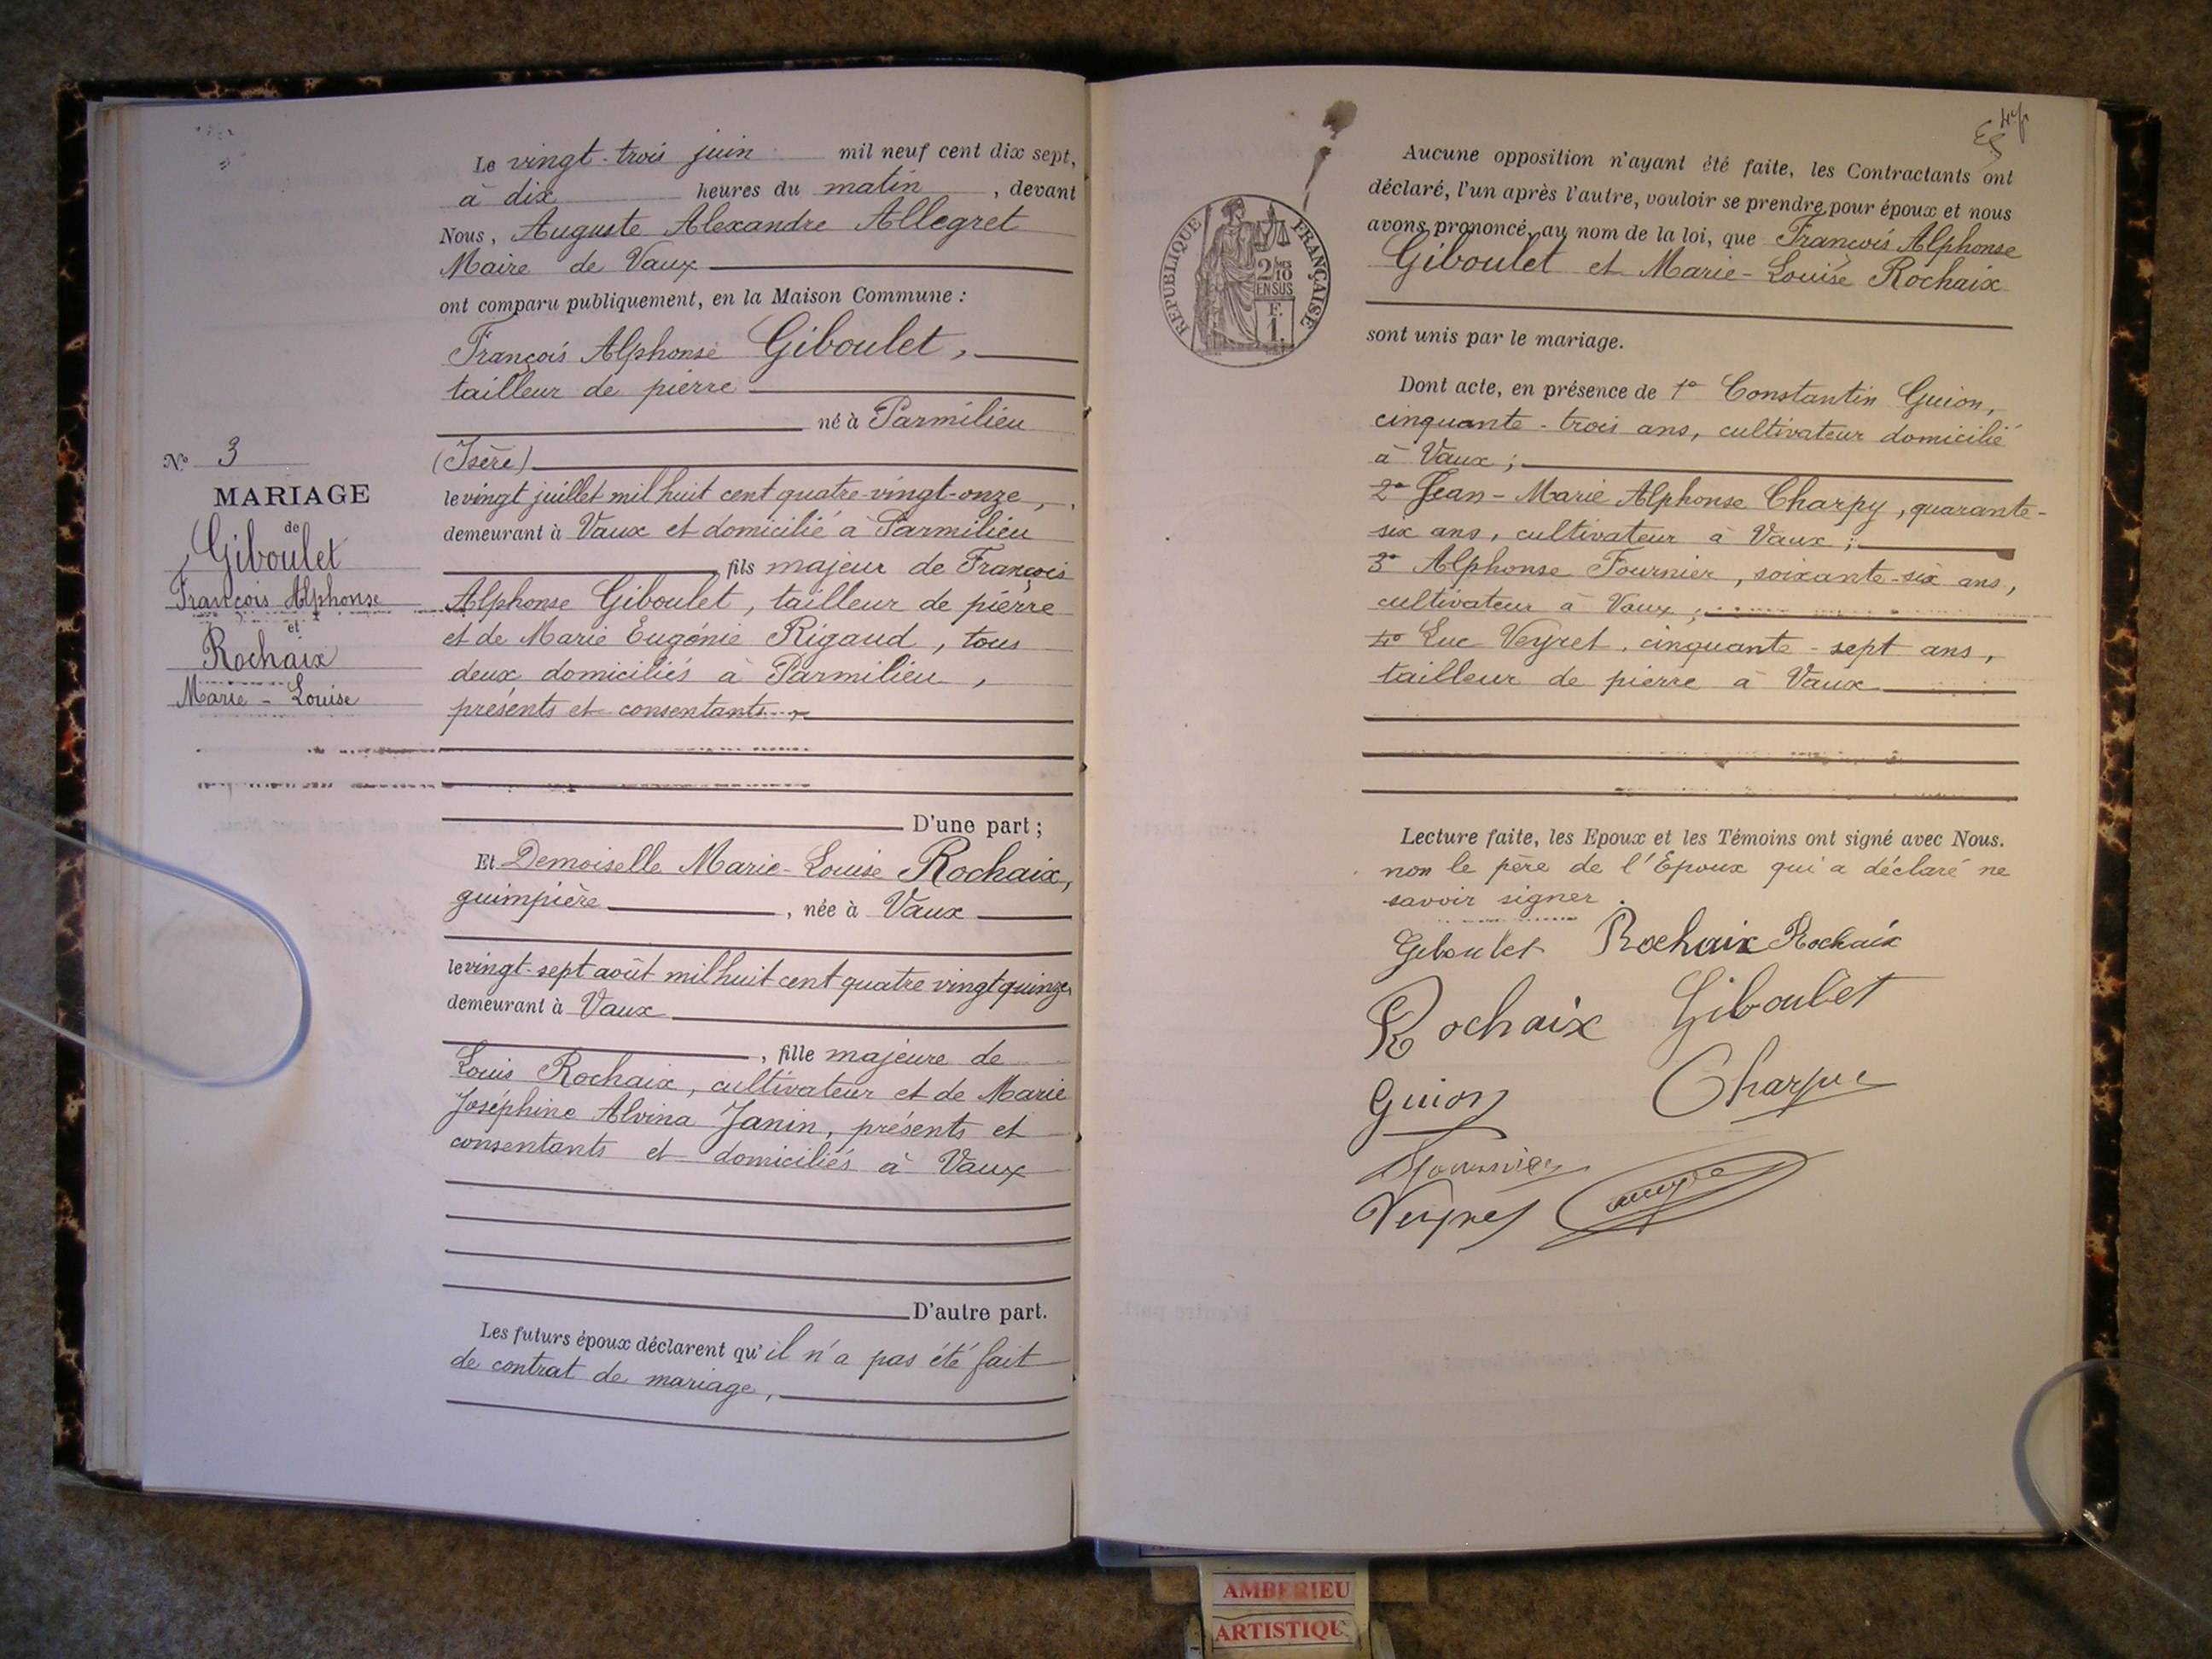 N° 3
MARIAGE
de
Giboulet
François Alphonse
et
Rochaix
Marie-Louise
Le vingt-trois juin mil neuf cent dix sept,
à dix heures du matin, devant
Nous, Auguste Alexandre Allegret
Maire de Vaux
ont comparu publiquement, en la Maison Commune :
François Alphonse Giboulet,
tailleur de pierre
né à Parmilieu
(Isère)
le vingt juillet mil huit cent quatre-vingt-onze,
demeurant à Vaux et domicilié à Parmilieu
fils majeur de François
Alphonse Giboulet, tailleur de pierre
et de Marie Eugénie Rigaud, tous
deux domiciliés à Parmilieu,
présents et consentants
D'une part ;
Et Demoiselle Marie-Louise Rochaix,
guimpière, née à Vaux
le vingt-sept août mil huit cent quatre vingt quinze,
demeurant à Vaux
, fille majeure de
Louis Rochaix, cultivateur et de Marie
Joséphine Alvina Janin, présents et
consentants et domiciliés à Vaux
D'autre part.
Les futurs époux déclarent qu'il n'a pas été fait
de contrat de mariage,
REPUBLIQUE FRANÇAISE
2/10
EN SUS
F.
1.
Aucune opposition n'ayant été faite, les Contractants ont
déclaré, l'un après l'autre, vouloir se prendre pour époux et nous
avons prononcé, au nom de la loi, que François Alphonse
Giboulet et Marie-Louise Rochaix
sont unis par le mariage.
Dont acte, en présence de 1° Constantin Guion,
cinquante-trois ans, cultivateur domicilié
à Vaux ;
2° Jean-Marie Alphonse Charpy, quarante-
six ans, cultivateur à Vaux ;
3° Alphonse Fournier, soixante-six ans,
cultivateur à Vaux ;
4° Luc Veyret, cinquante-sept ans,
tailleur de pierre à Vaux
Lecture faite, les Epoux et les Témoins ont signé avec Nous.
non le père de l'Epoux qui a déclaré ne
savoir signer.
Giboulet Rochaix Rochaix
Rochaix Giboulet
Guion Charpy
Fournier
Veyret
AMBERIEU
ARTISTIQU